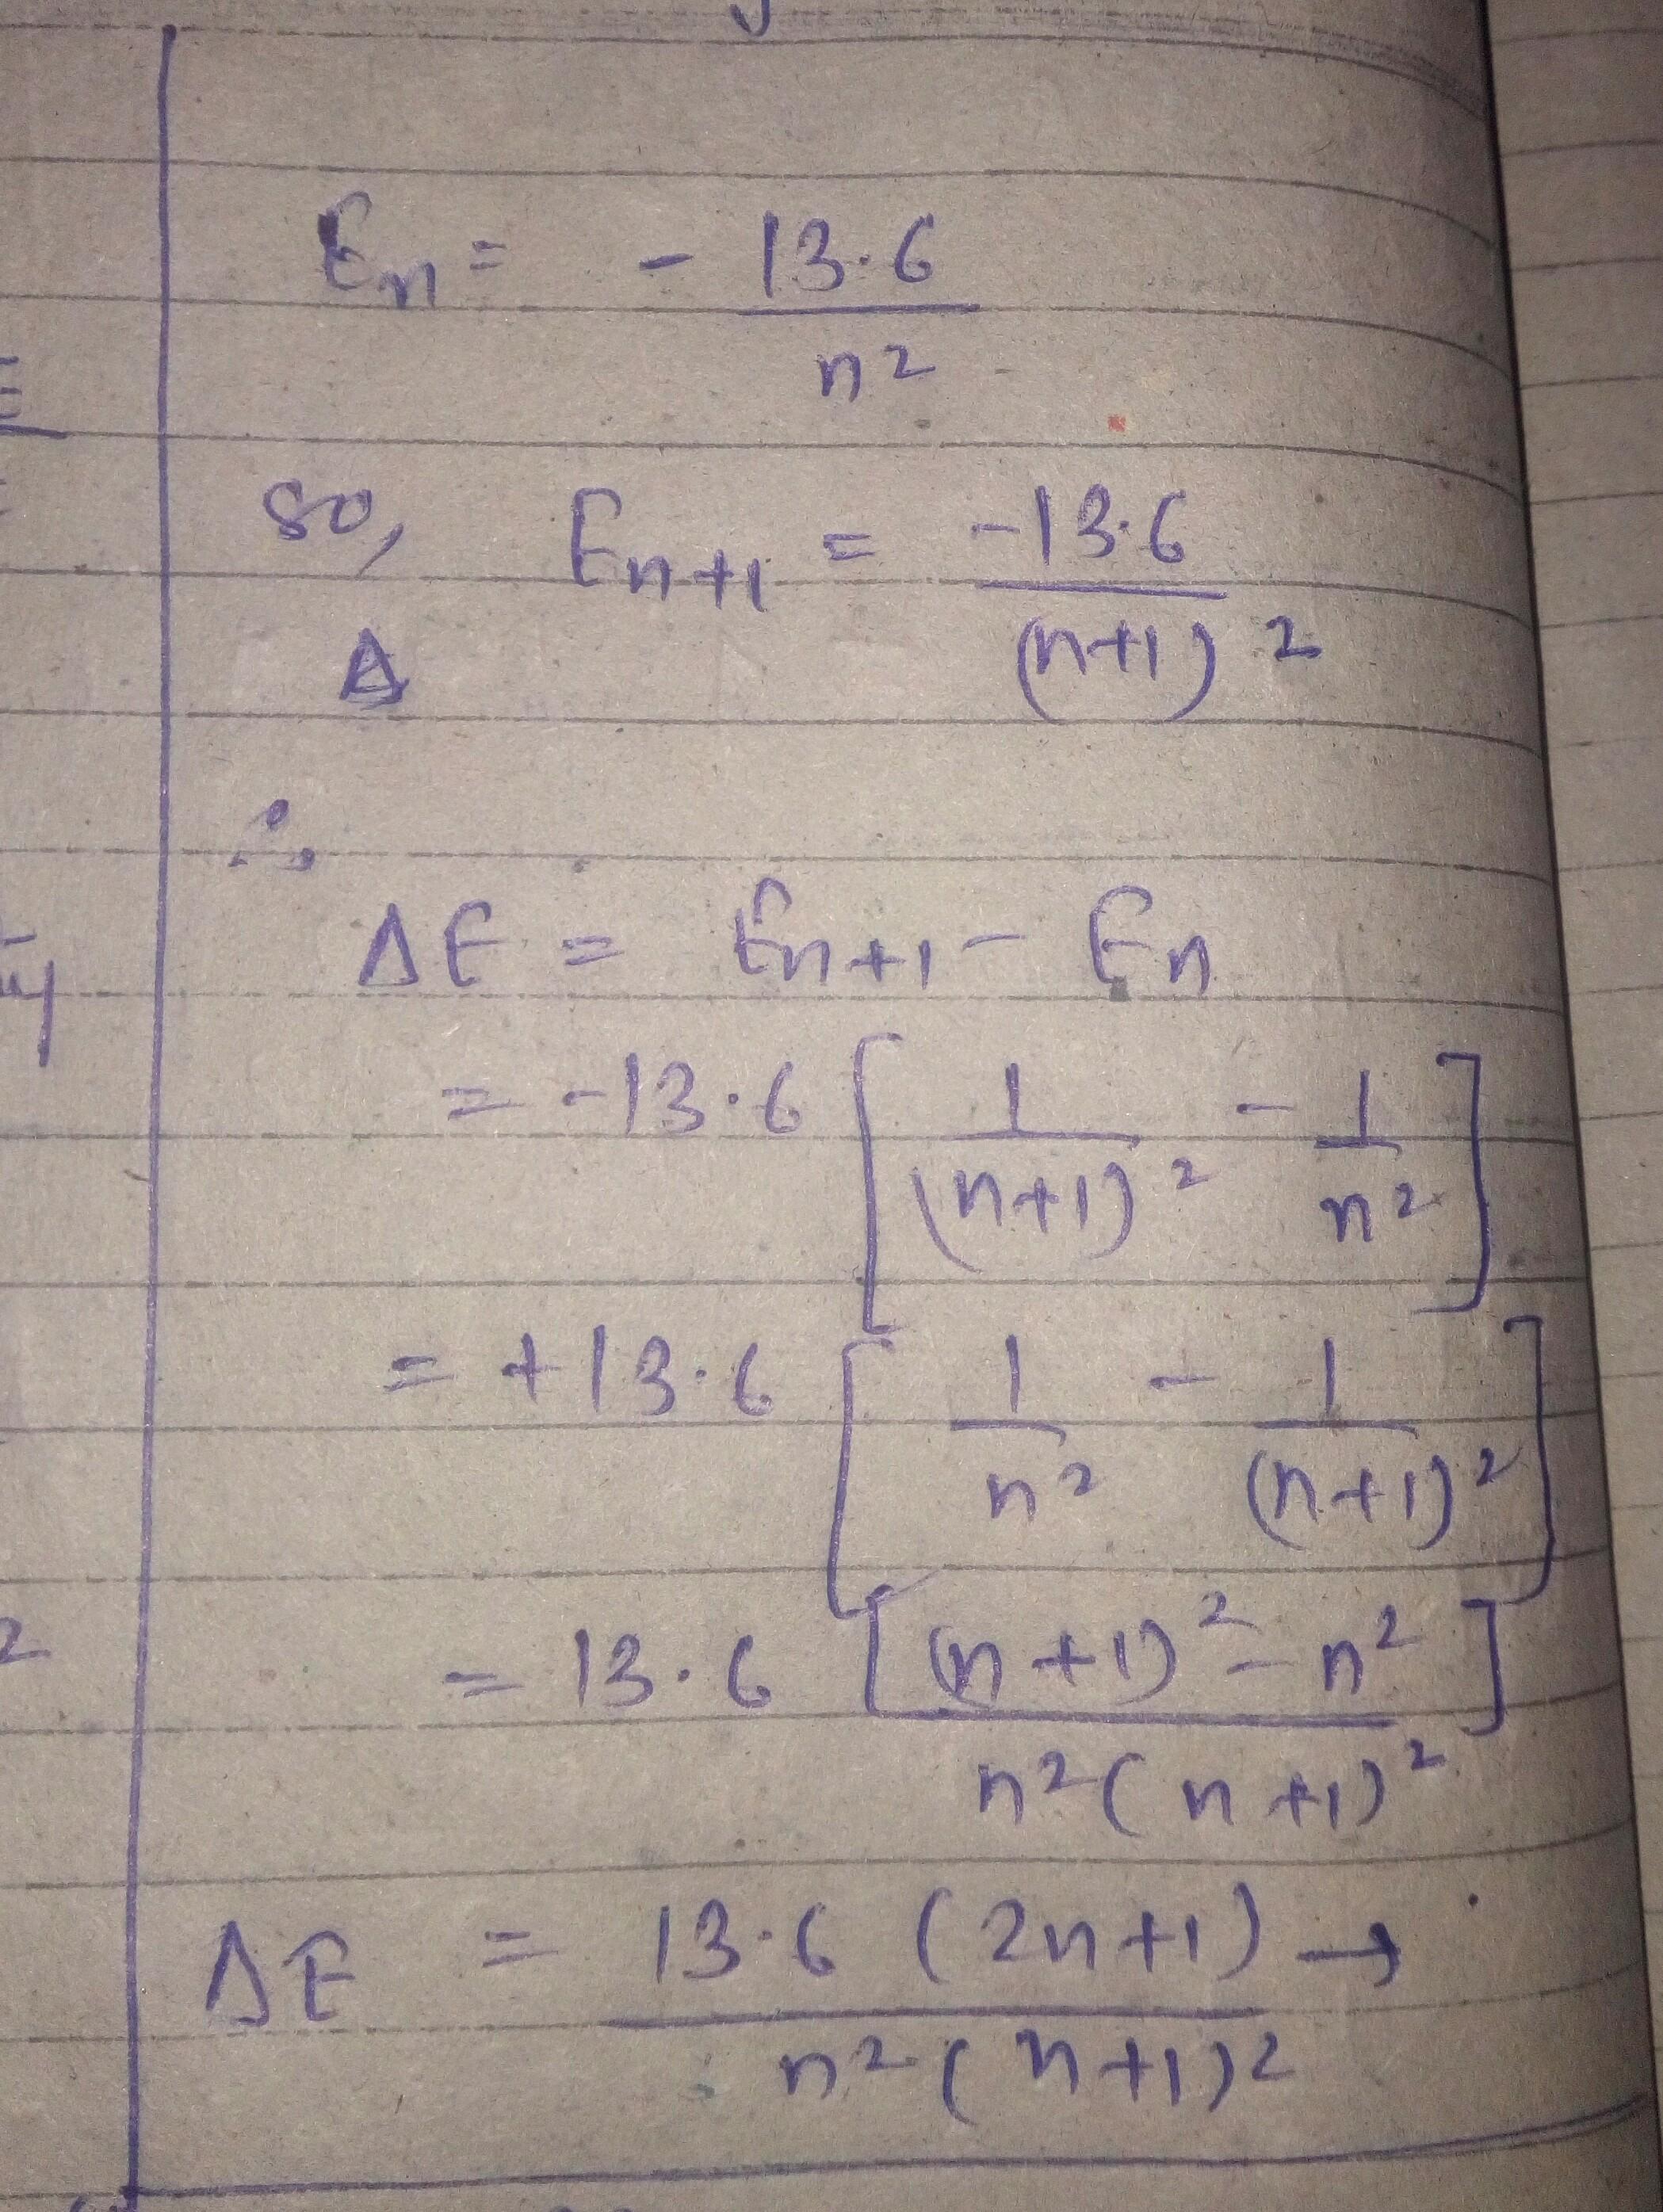 En = - 13.6
n²
so, En+1 = -13.6
(n+1)²
Δ
∴
ΔE = En+1 - En
= -13.6 [ 1 - 1 ]
(n+1)² n²
= +13.6 [ 1 - 1 ]
n² (n+1)²
= 13.6 [ (n+1)² - n² ]
n²(n+1)²
ΔE = 13.6 (2n+1) →
n²(n+1)²